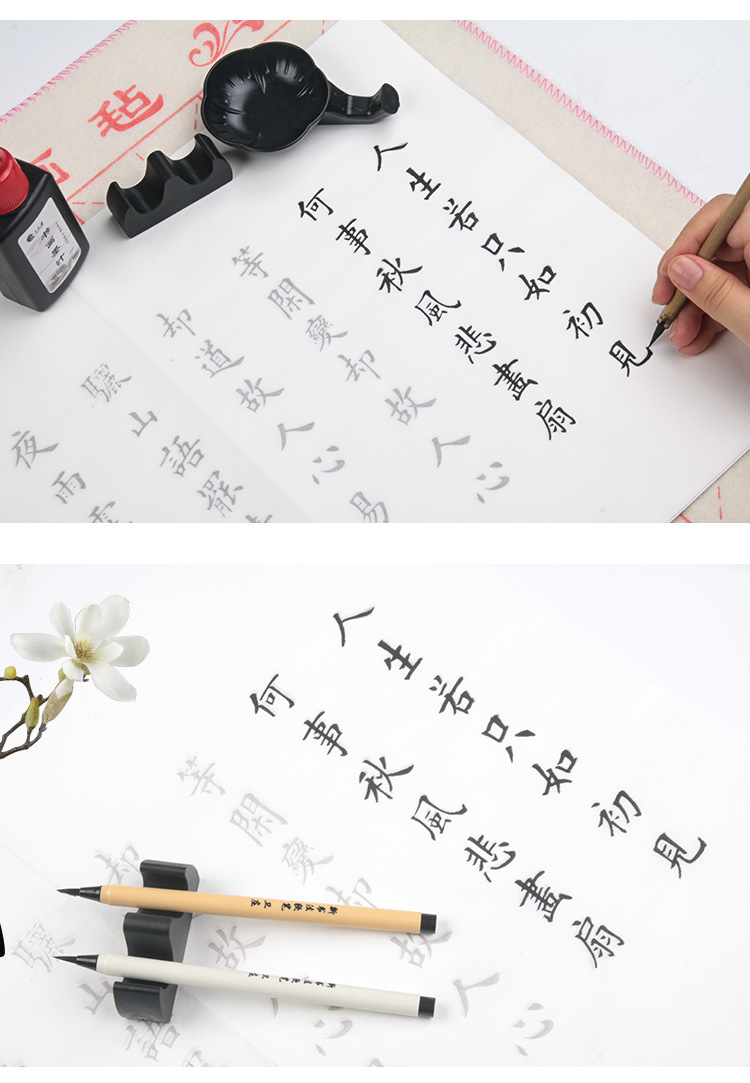 毡
书画墨汁
人生若只如初見
何事秋風悲畫扇
等閑變却故人心
却道故人心易
驪山語罷
夜雨
人生若只如初見
何事秋風悲畫扇
等閑變却故人心
却故人心
驪山語